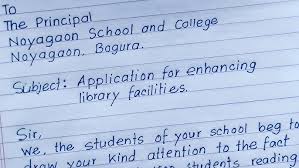 To
The Principal
Noyagaon School and College
Noyagaon, Bogura.
Subject: Application for enhancing
library facilities.
Sir,
We, the students of your school beg to
draw your kind attention to the fact
students reading